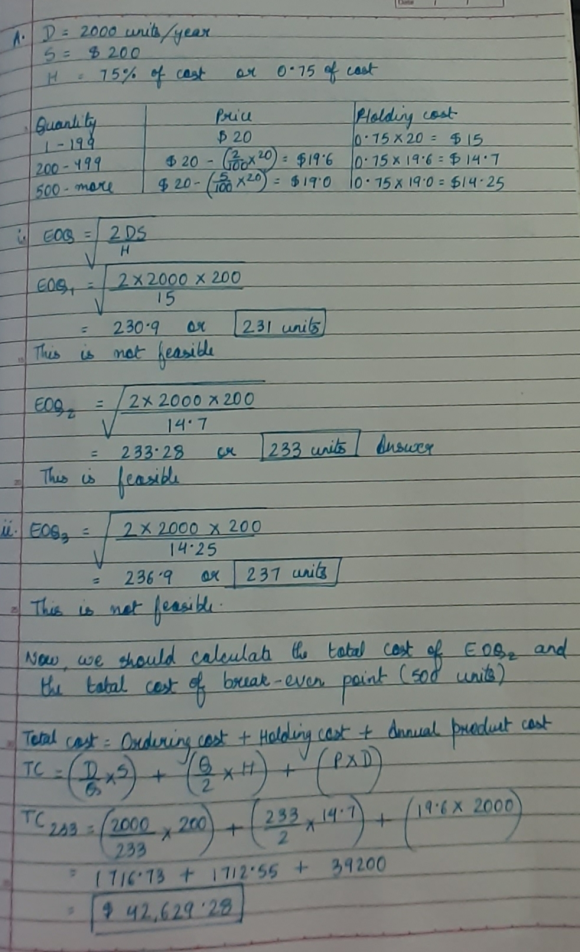 A. D = 2000 units/year
S = $ 200
H = 75% of cost or 0.75 of cost
Quantity Price Holding cost
1 - 199 $ 20 0.75 x 20 = $ 15
200 - 499 $ 20 - (2/100 x 20) = $ 19.6 0.75 x 19.6 = $ 14.7
500 - more $ 20 - (5/100 x 20) = $ 19.0 0.75 x 19.0 = $14.25
i. EOQ = √(2DS/H)
EOQ₁ = √(2 x 2000 x 200/15)
= 230.9 or 231 units
This is not feasible
EOQ₂ = √(2 x 2000 x 200/14.7)
= 233.28 or 233 units Answer
This is feasible
ii. EOQ₃ = √(2 x 2000 x 200/14.25)
= 236.9 or 237 units
This is not feasible.
Now, we should calculate the total cost of EOQ₂ and
the total cost of break-even point (500 units)
Total cost = Ordering cost + Holding cost + Annual product cost
TC = (D/Q x S) + (Q/2 x H) + (P x D)
TC 233 = (2000/233 x 200) + (233/2 x 14.7) + (19.6 x 2000)
= 1716.73 + 1712.55 + 39200
= $ 42,629.28